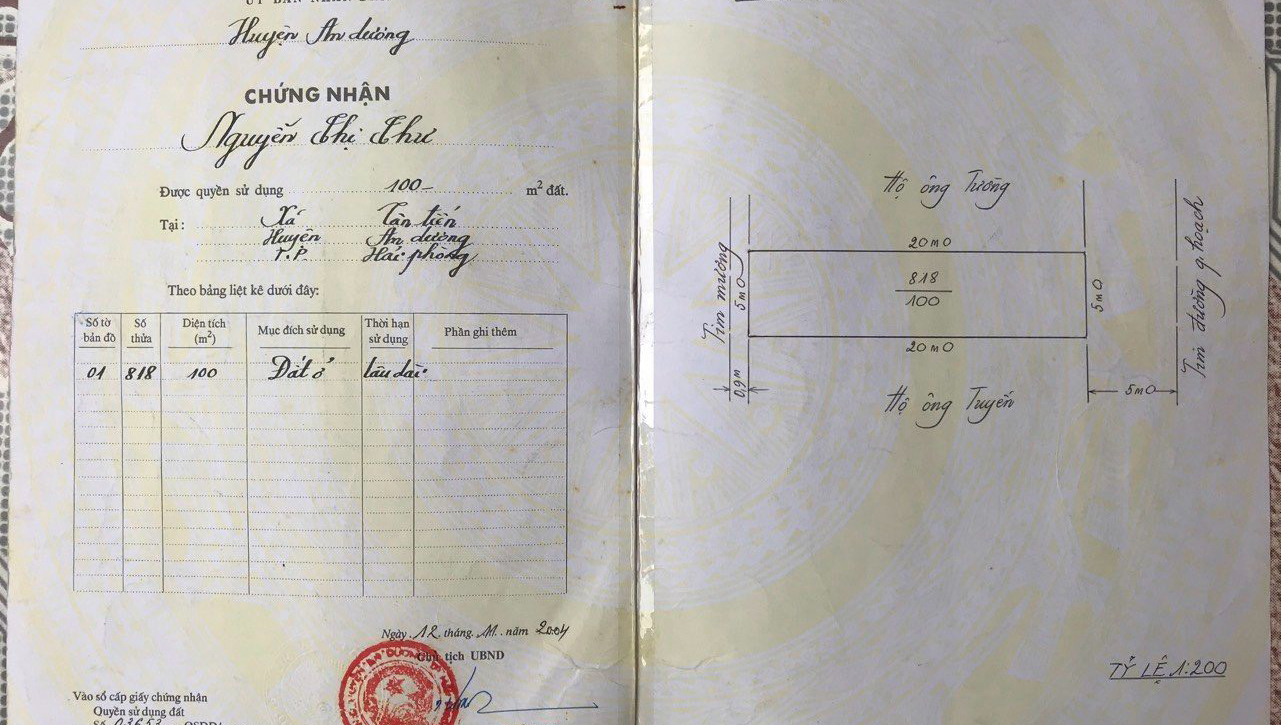 ỦY BAN NHÂN DÂN
Huyện An dương
CHỨNG NHẬN
Nguyễn Thị Thư
Được quyền sử dụng 100- m² đất.
Tại: Xã Tân tiến
Huyện An dương
T.P Hải phòng
Theo bảng liệt kê dưới đây:
Số tờ bản đồ
Số thửa
Diện tích (m²)
Mục đích sử dụng
Thời hạn sử dụng
Phần ghi thêm
01 818 100 Đất ở lâu dài
Ngày 12 tháng 11 năm 2004
Chủ tịch UBND
Vào sổ cấp giấy chứng nhận
Quyền sử dụng đất
Hộ ông Tường
20m0
818
100
5m0
5m0
20m0
Hộ ông Tuyến
Tim mương
0,9m
5m0
Tim đường q. hoạch
TỶ LỆ 1:200